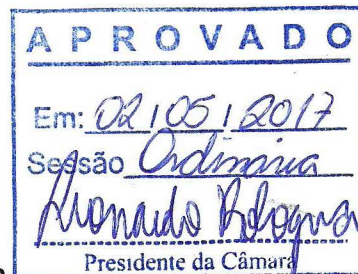 APROVADO
Em: 02/05/2017
Sessão Ordinária
Leonardo Bologna
Presidente da Câmara